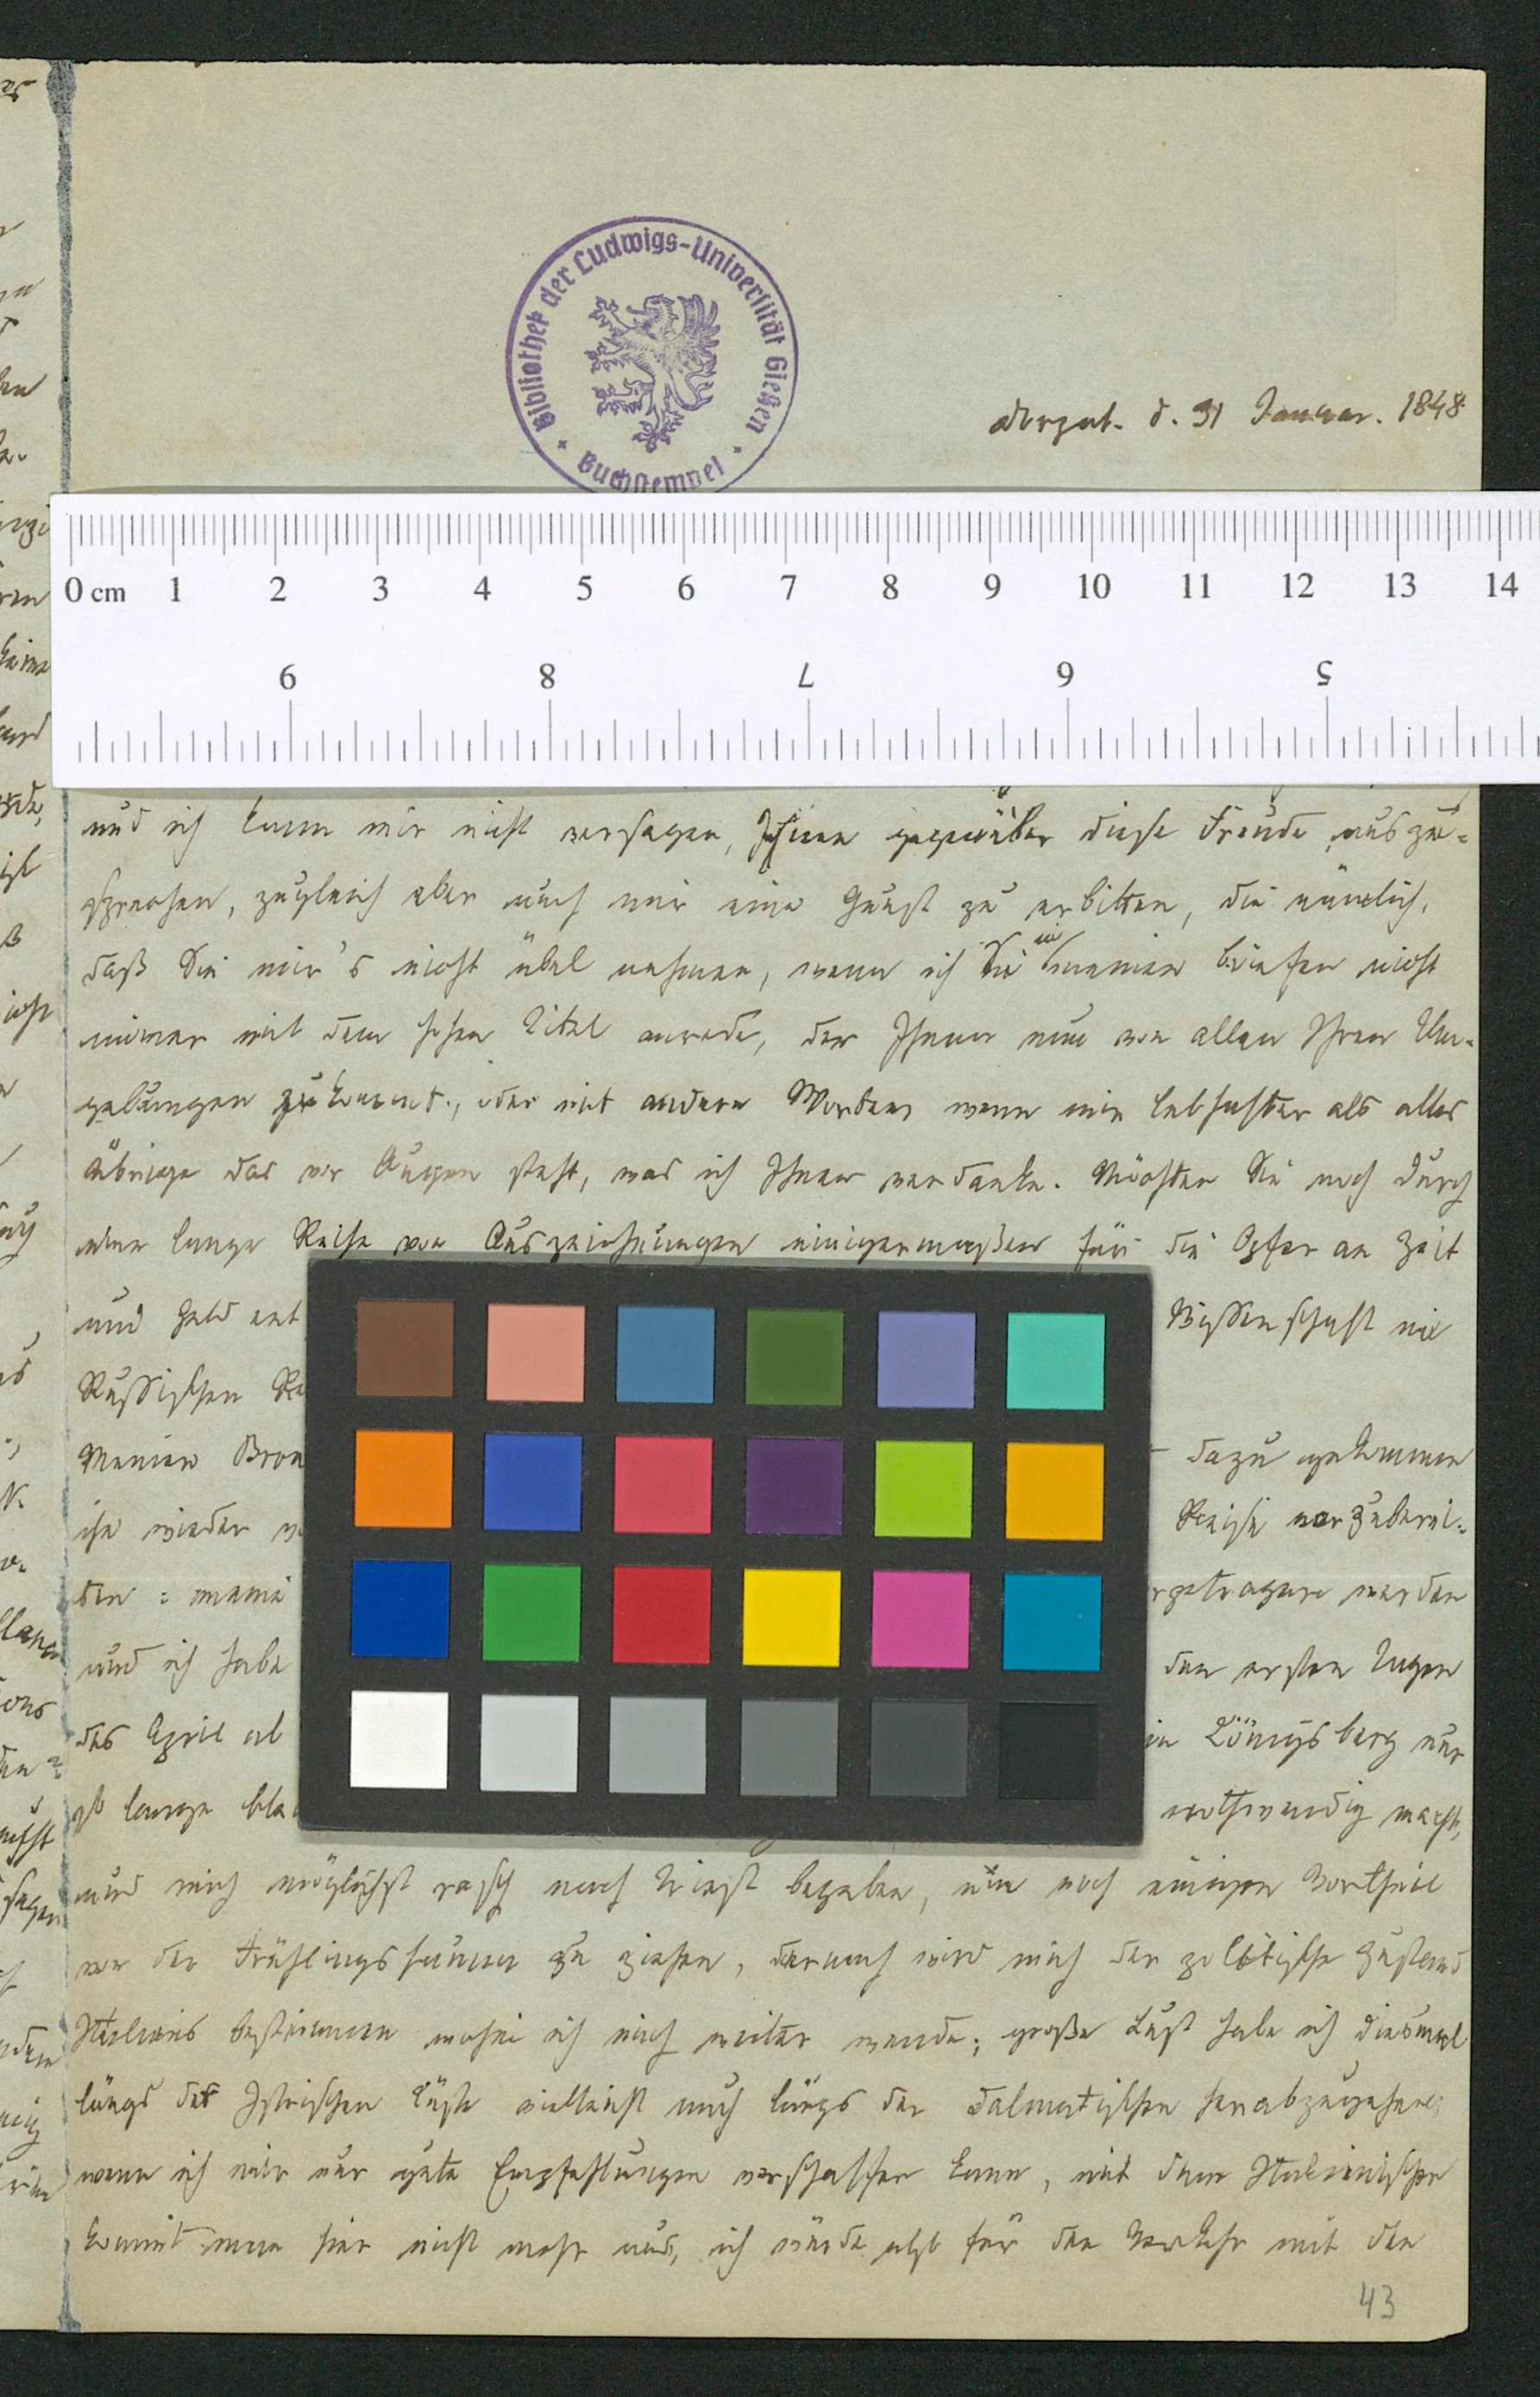 Bibliothek der Ludwigs-Universität Gießen
Buchstempel
Dorpat. d. 31 Januar. 1848.
0 cm 1 2 3 4 5 6 7 8 9 10 11 12 13 14
9 8 7 6 5
und ich kann mir nicht versagen, Ihnen gegenüber diese Freude auszu-
sprechen, zugleich aber auch mir eine Gunst zu erbitten, die nämlich,
daß Sie mir's nicht übel nehmen, wenn ich Sie in meinen Briefen nicht
immer mit dem hohen Titel anrede, der Ihnen nun von allen Ihren Um-
gebungen zukommt, oder mit andern Worten wenn mir lebhafter als alles
Übrige das vor Augen steht, was ich Ihnen verdanke. Möchten Sie noch durch
eine lange Reihe von Auszeichnungen einigermaßen für die Opfer an Zeit
und Geld ent
Wissenschaft im
Russischen Re
Meinen Bron
dazu gekommen
ihn wieder
Reise vorzuberei-
ten : meine
getragen werden
und ich habe
den ersten Tagen
des April ab
in Königsberg nur
so lange blei
nothwendig macht,
und mich möglichst rasch nach Triest begeben, um noch einigen Vortheil
von der Frühlingsfauna zu ziehen, darnach wird mich der politische Zustand
Italiens bestimmen wohin ich mich weiter wende; große Lust habe ich diesmal
längs der Istrischen Küste vielleicht auch längs der Dalmatischen herabzugehen;
wenn ich mir nur gute Empfehlungen verschaffen kann, mit dem Italienischen
kommt man hier nicht mehr aus, ich würde also für den Verkehr mit den
43